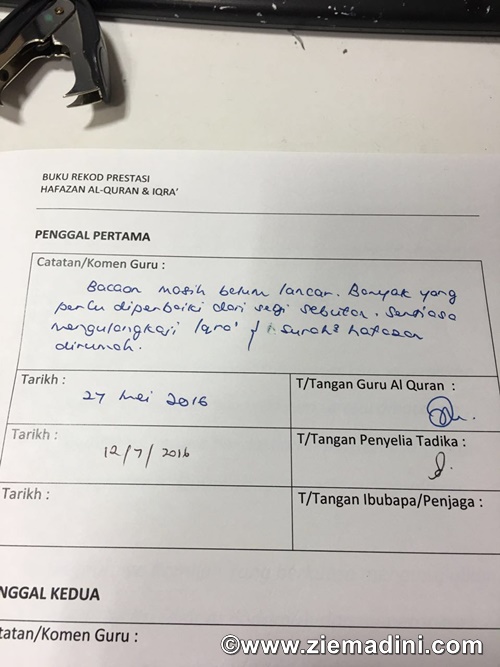 BUKU REKOD PRESTASI
HAFAZAN AL-QURAN & IQRA'
PENGGAL PERTAMA
Catatan/Komen Guru :
Bacaan masih belum lancar. Banyak yang
perlu diperbaiki dari segi sebutan. Sentiasa
mengulangkaji Iqra' surah² hafazan
dirumah.
Tarikh :
27 Mei 2016
T/Tangan Guru Al Quran :
Tarikh :
12/7/2016
T/Tangan Penyelia Tadika :
Tarikh :
T/Tangan Ibubapa/Penjaga :
NGGAL KEDUA
tatan/Komen Guru :
©www.ziemadini.com